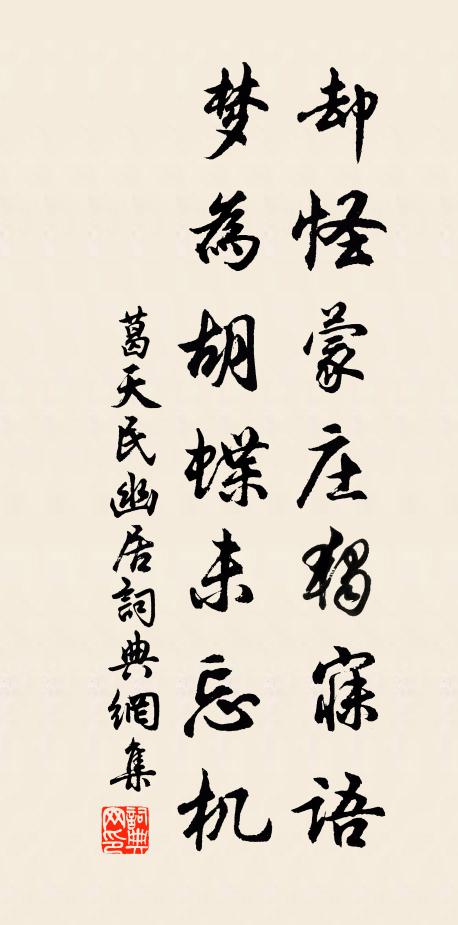 却怪蒙庄独寐语
梦為胡蝶未忘机
葛天民幽居詞典網集
詞典网印